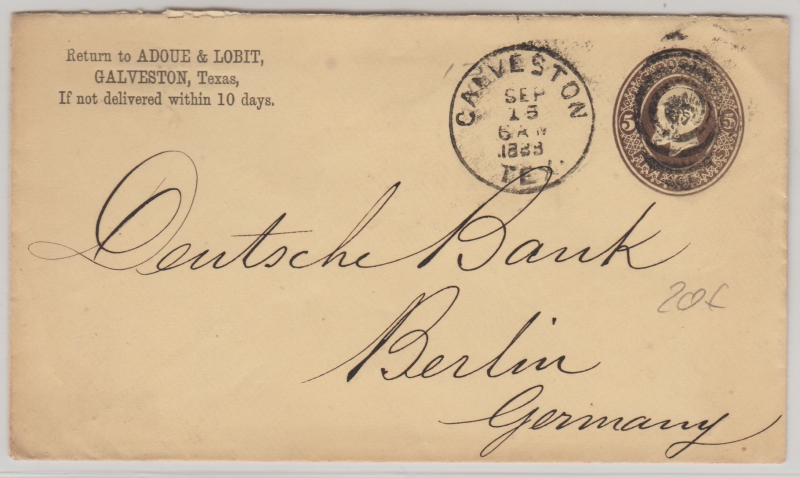 Return to ADOUE & LOBIT,
GALVESTON, Texas,
If not delivered within 10 days.
GALVESTON
SEP
15
6 AM
1888
TEX.
5 5
Deutsche Bank
Berlin
Germany